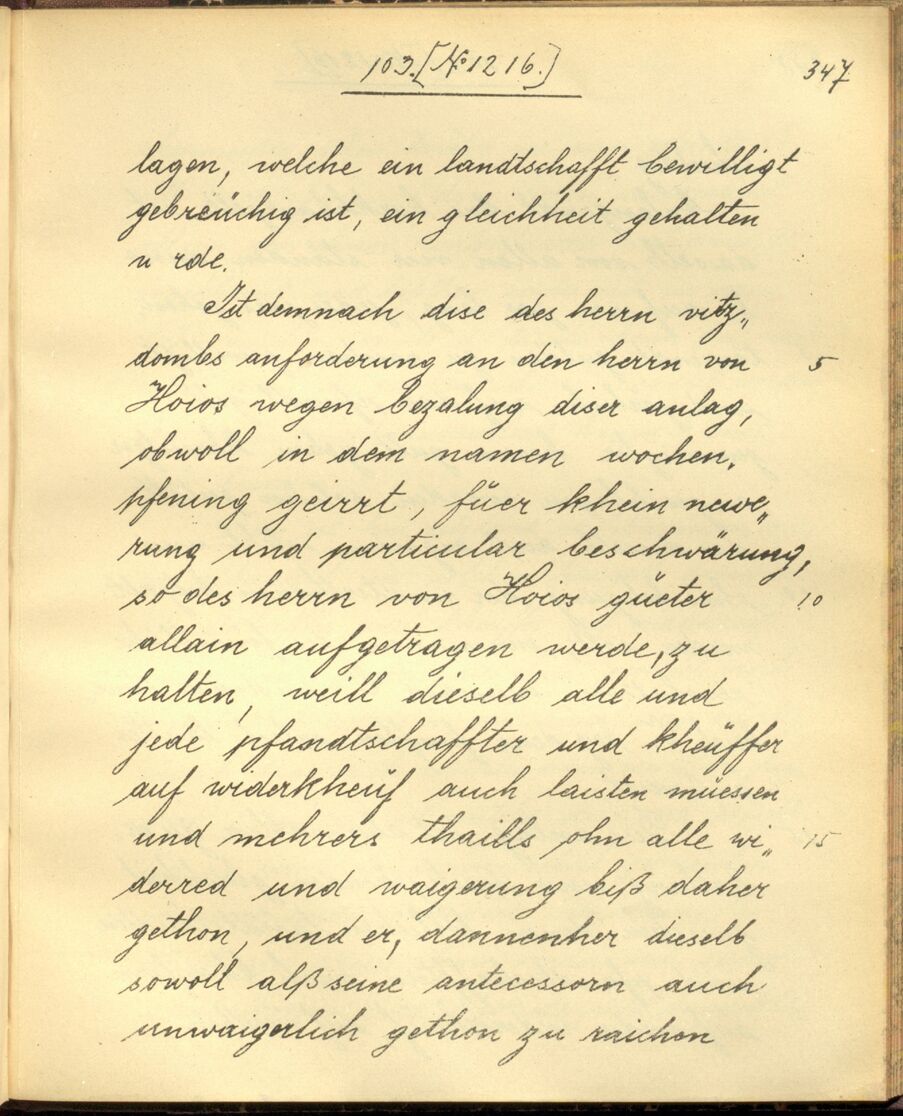 103. [№ 1216.]
347
lagen, welche ein landtschafft bewilligt
gebreüchig ist, ein gleichheit gehalten
u rde.
Ist demnach dise des herrn vitz„
dombs anforderung an den herrn von
5
Hoios wegen bezalung diser anlag,
obwoll in dem namen wochen„
pfening geirrt, füer khein newe„
rung und particular beschwärung,
so des herrn von Hoios güeter
10
allain aufgetragen werde, zu
halten, weill dieselb alle und
jede pfandtschaffter und kheüffer
auf widerkheüf auch laisten müessen
und mehrers thaills ohn alle wi„
15
derred und waigerung biß daher
gethon, und er, dannenher dieselb
sowoll alß seine antecessorn auch
unwaigerlich gethon zu raichen